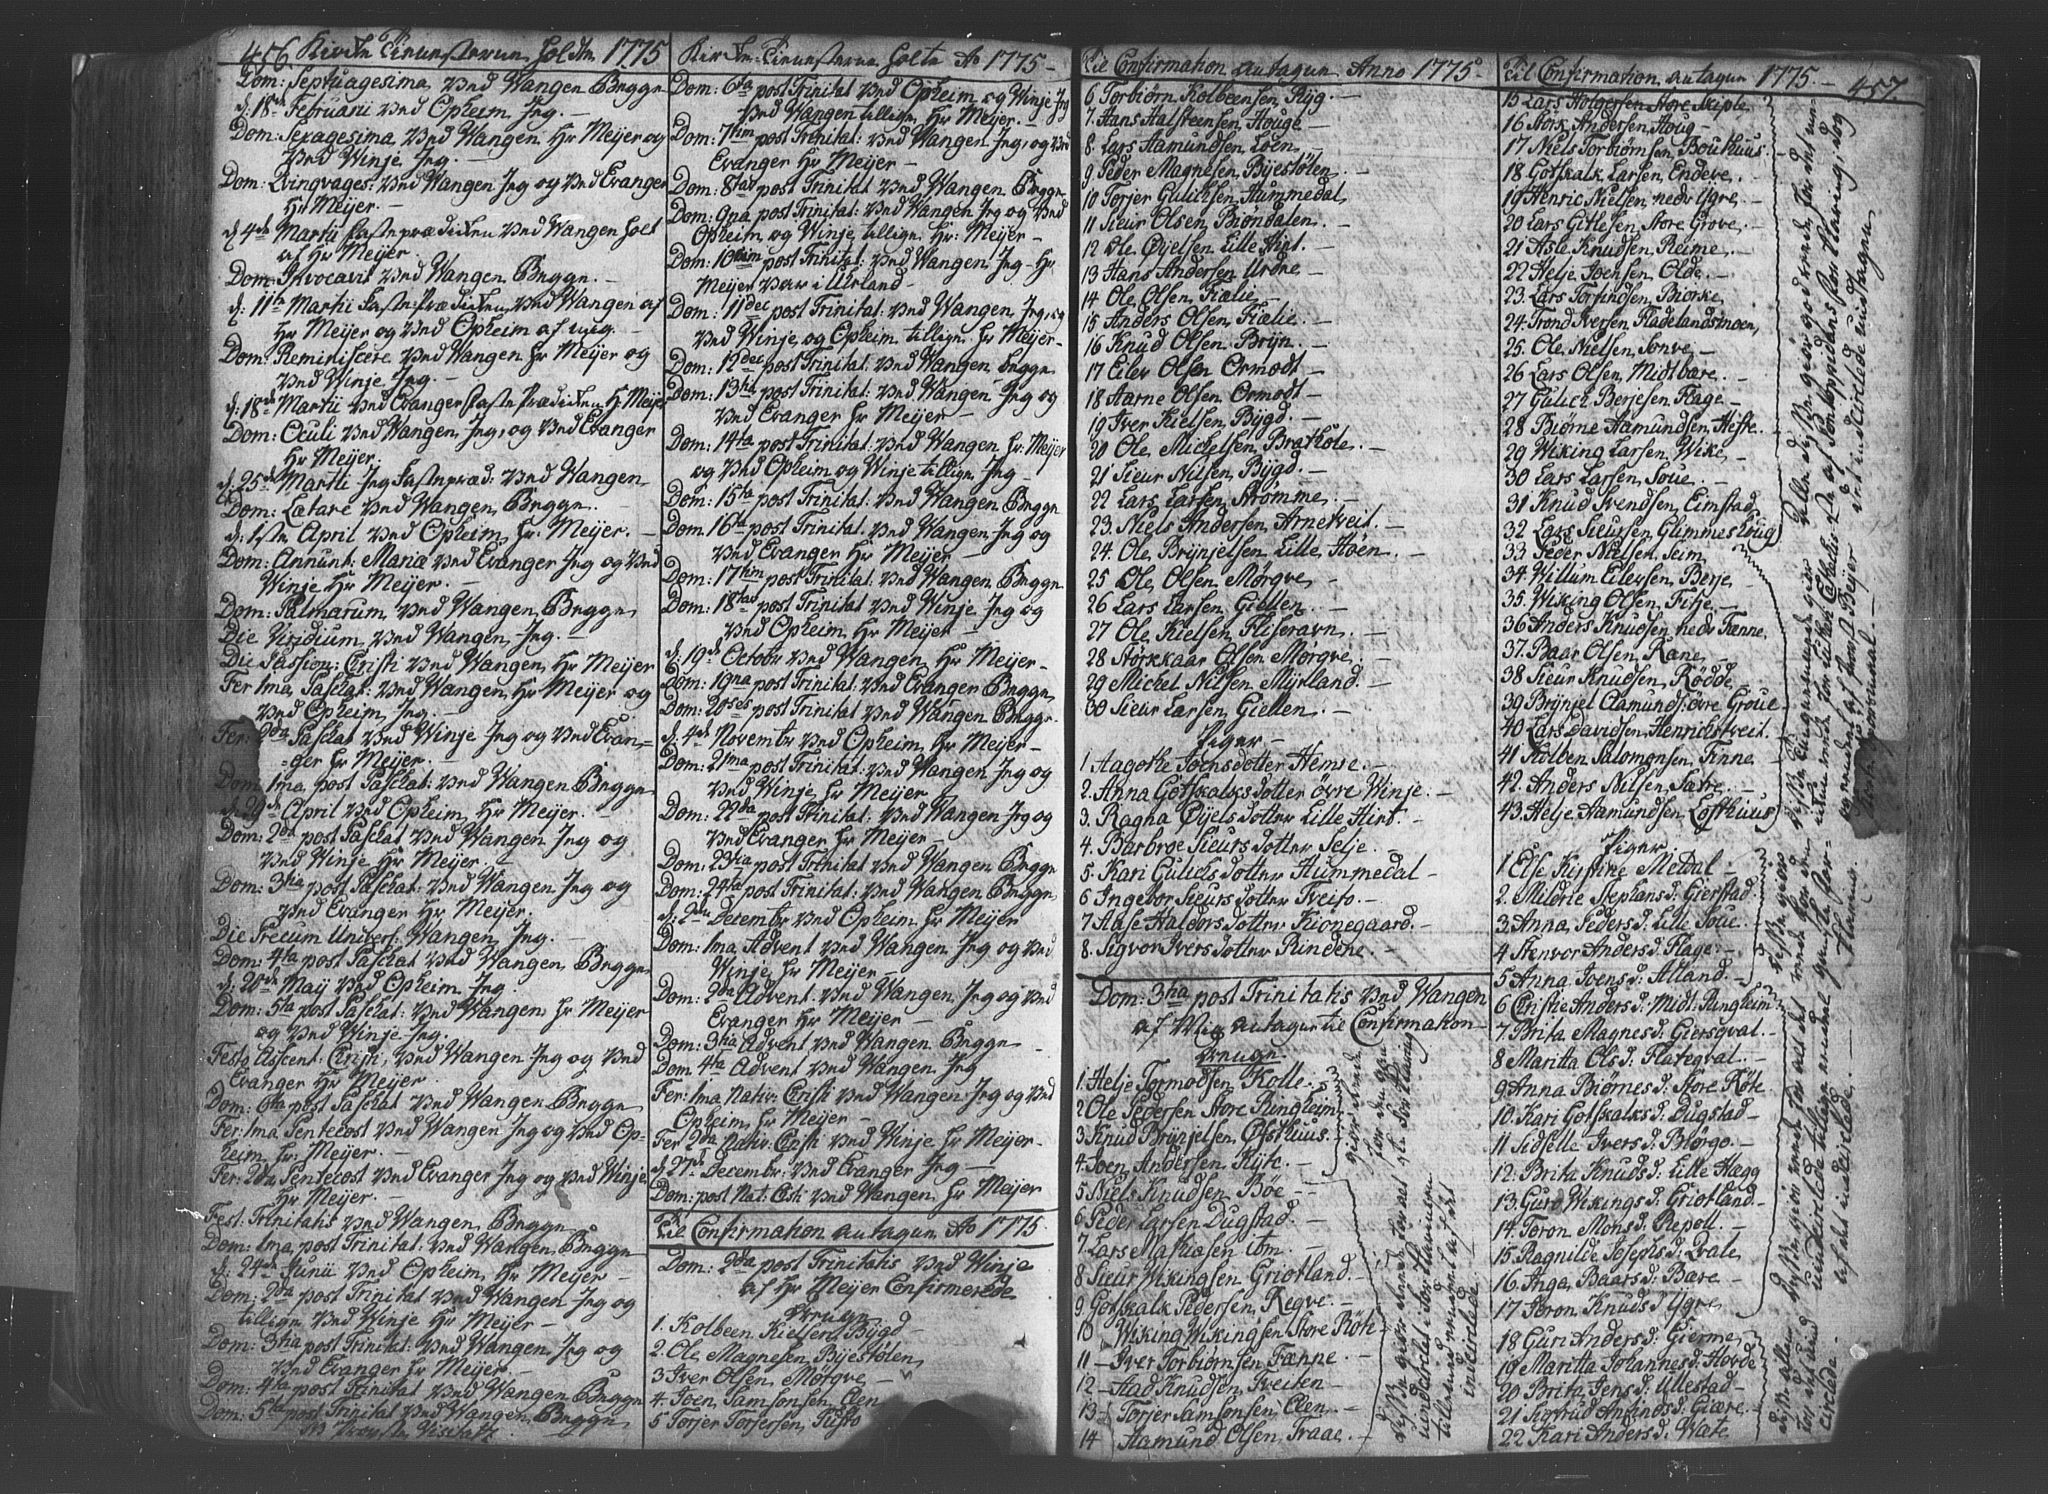 456. Kirke Tienesterne holdte 1775
Dom: Septuagesima ved Wangen Begge
d: 18de Februarii ved Opheim Jeg. –
Dom: Sexagesima ved Wangen Hr Meijer og
ved Winje Jeg. –
Dom: Qvinqvages: ved Wangen Jeg og ved Evanger
Hr Meijer. –
d 4de Martii fasteprædiken ved Wangen holt
af Hr Meijer
Dom: Invocavit ved Wangen Begge. –
d: 11te Martii faste Prædiken ved Wangen af
Hr Meijer og ved Opheim af mig. –
Dom: Reminiscere ved Wangen Hr Meijer og
ved Winje Jeg. –
d: 18de Martii ved Evanger faste Prædiken Hr Meijer
Dom: Oculi ved Wangen Jeg, og ved Evanger
Hr Meijer.
d: 25de Martii Jeg fastepræd: ved Wangen
Dom: Lætare ved Wangen Begge. –
d: 1ste April ved Opheim Hr. Meijer. –
Dom: Annunt: Mariæ ved Evanger Jeg og ved
Winje Hr Meijer. –
Dom: Palmarum ved Wangen Begge
Die Viridium ved Wangen Jeg. –
Die Passion: Christi ved Wangen Hr Meijer
Fer 1ma Paschat: ved Wangen Hr Meijer og
ved Opheim Jeg. –
Fer: 2da Paschat ved Winje Jeg og ved Evan=
=ger Hr Meijer.
Dom: 1ma post Paschat: ved Wangen Begge
d: 29de April ved Opheim Hr Meijer. –
Dom: 2da post Paschat ved Wangen Jeg og
ved Winje Hr Meijer. –
Dom: 3tia post Paschat: ved Wangen Jeg og
ved Evanger Hr Meijer.
Die Precum Univers: Wangen Jeg. –
Dom: 4ta post Paschat ved Wangen Begge
d: 20de May ved Opheim Jeg.
Dom: 5ta post Paschat: ved Wangen Hr Meijer
og ved Winje Jeg. –
Festo Ascent: Christi, ved Wangen Jeg og ved
Evanger Hr Meijer.
Dom: 6ta post Paschat ved Wangen Begge
Fer: 1ma Pentecost ved Wangen Jeg og ved Op=
heim Hr: Meijer. –
Fer: 2da Pentecost ved Evanger Jeg og ved Winje
Hr Meijer. –
Fest: Trinitatis ved Wangen Begge
Dom: 1ma post Trinitat: ved Wangen Begge
d: 24de Junii ved Opheim Hr Meijer –
Dom: 2da post Trinitat ved Wangen Jeg og
tillige ved Winje Hr Meijer –
Dom: 3tia post Trinitat: ved Wangen Jeg og
ved Evanger Hr Meijer –
Dom: 4ta post Trinitat ved Wangen Begge
Dom: 5ta post Trinitat ved Wangen Begge
Kirke Tienesterne holte Ao 1775 –
Dom: 6ta post Trinitat ved Opheim og Winje Jeg
ved Wangen tillige Hr Meijer. –
Dom: 7tim post Trinitat: ved Wangen Jeg, og ved
Evanger Hr Meijer –
Dom: 8tav post Trinitat ved Wangen Begge
Dom: 9na post Trinitat: ved Wangen Jeg og ved
Opheim og Winje tillige Hr: Meijer –
Dom: 10cim post Trinitat: ved Wangen Jeg – Hr
Meijer var i Urland –
Dom: 11dec post Trinitat: ved Wangen Jeg, og
ved Winje og Opheim tillige Hr Meijer –
Dom: 12dec post Trinitat: ved Wangen Begge
Dom: 13tii post Trinitat: ved Wangen Jeg og
ved Evanger Hr Meijer –
Dom: 14ta post Trinitat: ved Wangen Hr Meijer
og ved Opheim og Winje tillige Jeg –
Dom: 15ta post Trinitat: ved Wangen Begge
Dom: 16ta post Trinitat: ved Wangen Jeg og
ved Evanger Hr Meijer –
Dom: 17tim post Trinitat: ved Wangen Begge
Dom: 18tav post Trinitat ved Winje Jeg og
ved Opheim Hr Meijer –
d: 19de Octobr ved Wangen Hr Meijer –
Dom: 19na post Trinitat: ved Evanger Begge
Dom: 20ses post Trinitat ved Wangen Begge –
d: 4de Novembr ved Opheim Hr Meijer –
Dom: 21ma post Trinitat: ved Wangen Jeg og
ved Winje Hr Meijer
Dom: 22da post Trinitat: ved Wangen Jeg og
ved Evanger Hr Meijer –
Dom: 23tia post Trinitat ved Wangen Begge
Dom: 24ta post Trinitat: ved Wangen Begge
d: 2den Decembr ved Opheim Hr Meijer
Dom: 1ma Advent ved Wangen Jeg og ved
Winje Hr Meijer –
Dom: 2da Advent: ved Wangen Jeg og ved
Evanger Hr Meijer –
Dom: 3tia Advent: ved Wangen Begge –
Dom 4ta Advent ved Wangen Jeg
Fer: 1ma Nativ: Christi ved Wangen Jeg og ved
Opheim Hr: Meijer –
Fer 2da Nativ: Christi ved Winje Hr Meijer –
d: 27de Decembr: ved Evanger Jeg –
Dom: post Nat: Christi ved Wangen Hr Meijer
Til Confirmation antagne Ao 1775.
Dom: 2da post Trinitatis ved Winje
af Hr Meijer Confirmerede
Drenge
1. Kolbeen Kielsen Bygd –
2. Ole Magnesen Bijestölen
3 Iver Olsen Mörgve –
4. Joen Samsonsen Clen
5 Torjer Torjersen Tufto
Til Confirmation antagne Anno 1775.
6 Torbiörn Kolbeensen Ryg. –
7. Hans Halsteensen Houge –
8 Lars Aamundsen Loen –
9 Peder Magnesen Bijestölen –
10 Torjer Gulichsen Hummedal
11 Sieur Olsen Biöndalen –
12 Ole Öyelsen Lille Hirt. –
13 Hans Andersen Urdne –
14 Ole Olsen Fiælie –
15 Anders Olsen Fiælie –
16 Knud Olsen Bryn. –
17 Eilev Olsen Ormodt –
18 Aarne Olsen Ormodt –
19 Iver Kielsen Bygd. –
20 Ole Michelsen Brathole. –
21 Sieur Nilsen Bygd. –
22 Lars Larsen Strömme. –
23. Niels Andersen Arnetveit. –
24. Ole Brynjelsen Lille Höen. –
25 Ole Olsen Mörgve –
26 Lars Larsen Giellen. –
27 Ole Kielsen Flisravn. –
28 Störkkaar Olsen Mörgve. –
29 Michel Nilsen Myrland. –
30 Sieur Larsen Giellen –
Piger –
1 Aagothe Joensdotter Hemre. –
2. Anna Gotskalksdotter övre Winje. –
3. Ragna Öyelsdotter Lille Hirt. –
4. Barbroe Sieursdotter Selje. –
5. Kari Gulichsdotter Hummedal –
6 Ingebor Sieursdotter Tveito. –
7 Aase Haldorsdotter Kiönegaard. –
8. Sigvor Iversdotter Rindene –
Dom: 3tia post Trinitatis ved Wangen
af Mig antagne til Confirmation –
Drenge
1. Helje Tormodsen Kolle. –
2 Ole Pedersen Store Ringheim
3 Knud Brynjelsen Østhuus. –
4. Joen Andersen Kyte. –
5 Niels Knudsen Böe. –
6 Peder Larsen Dugstad. –
7. Lars Mathiasen ibm. –
8 Sieur Wikingsen Griotland. –
9 Gotskalk Pedersen Regve. –
10 Wiking Wikingsen Store Röte –
11 – Iver Torbiörnsen Tænne. –
12 – Aad Knudsen Tveiten –
13 – Torjer Samsonsen Clen. –
14 Aamund Olsen Traae. –
Til Confirmation antagne 1775. – 457.
15 Lars Holgersen Store Skiple
16 Störk Andersen Houg
17 Niels Torbiörnsen Bouthuus.
18 Gotskalk Larsen Endeve. –
19 Henric Nielsen nedr Ygre. –
20 Lars Gitlesen Store Grove. –
21 Asle Knudsen Reime. –
22 Helje Joensen Olde. –
23. Lars Torfindsen Biörke
24. Trond Iversen Fladelandsmoen
25. Ole Nielsen Sonve –
26 Lars Olsen Midtbære. –
27 Gulich Berjesen Flage –
28 Biörne Aamundsen Hefte.
29 Wiking Larsen Wike. –
30 Lars Larsen Soue. –
31 Knud Svendsen Eimstad
32 Lars Sieursen Glimmeshoug
33 Peder Nielsen Seim
34. Willum Eilevsen Berje
35. Wiking Olsen Fitje. –
36 Anders Knudsen nedr Tænne.
37. Baar Olsen Rane. –
38 Sieur Knudsen Rödde
39 Brynjel Aamunds: övre Groue –
40 Lars Davidsen Henrichstveit.
41 Kolben Salomonsen Finne –
42. Anders Nilsen Sætre. –
43. Helje Aamundsen Lofthuus
Piger
1 Else Kirstine Meldal –
2. Mildrie Stephansd: Gierstad
3. Anna Pedersd: Lille Soue –
4 Stenvor Andersd: Flage. –
5 Anna Joensd: Alland. –
6 Christie Andersd: Midt Ringheim
7. Brita Magnesd: Giersqval. –
8 Maritta Olsd: Flateqval. –
9 Anna Biörnesd: Store Röte
10. Kari Gotskalksd: Dugstad. –
11 Sidselle Iversd: Blörgo. –
12. Brita Knudsd: Lille Hægg
13. Guro Wikingsd: Griotland. –
14. Toron Monsd: Repoll. –
15. Ragnilde Josephsd: Qvale
16. Inga Baarsd: Bare –
17 Joron Knudsd: Ygre
18 Guri Andersd: Gierme
19 Maritta Johannesd: Horde
20 Brita Jensd: Ullestad. –
21 Sigtrud Anfindsd: Giære –
22 Kari Andersd: Wæte. –